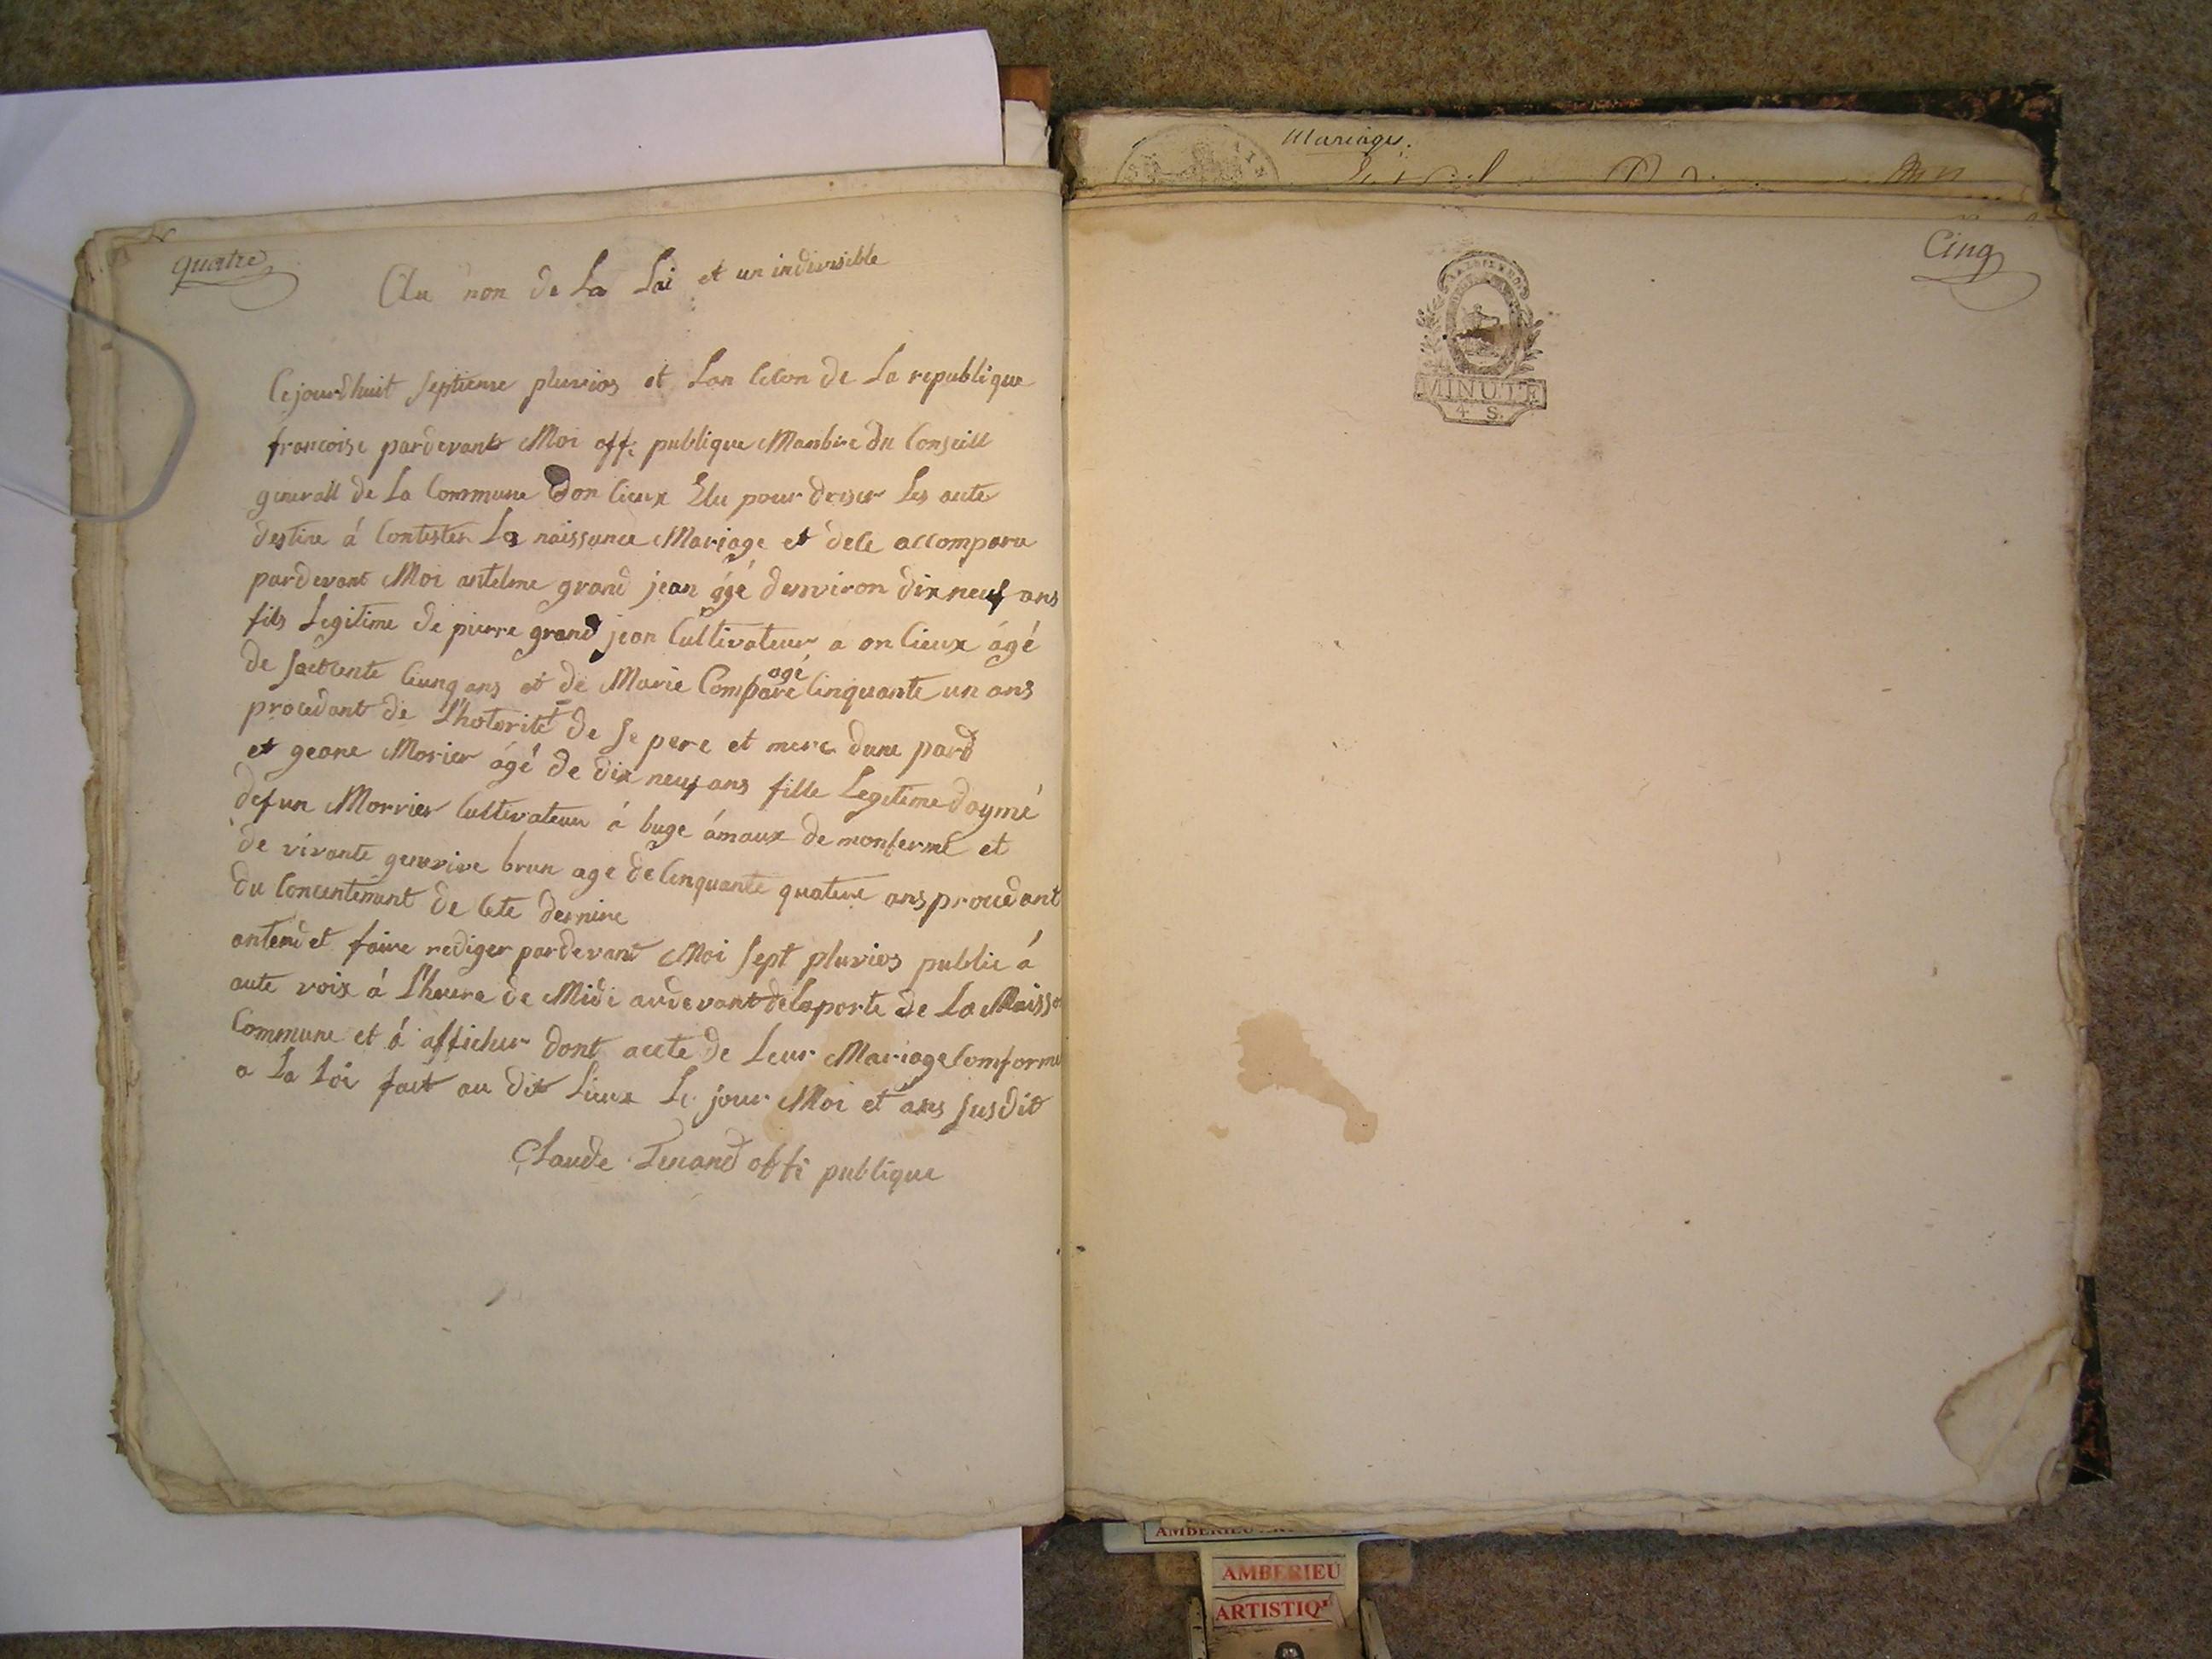 quatre
Au non de La Loi et un indivisible
Cejourdhuit septieme pluvios et Lan Cecon de La republique
francoise pardevant Moi off. publique Manbre du Conseill
generall de La Commune Don Cieux Elu pour driser Les aute
destine á Contester La naissance Mariage et dece accompara
pardevant Moi antelme grand jean ágé desnviron dix neuf ans
fils Legitime de pierre grand jean Cultivateur a on Cieux ágé
de soictente Cinq ans et de Marie Compare agé Cinquante un ans
procedant de L'hotorité de Se pere et mere dune pard
et geane Morier ágé de dix neuf ans fille Legitime daymé
defun Morrier Cultivateur á buge ámaux de monfermé et
de vivante genevive brun age de Cinquante quatere ans procedant
du Concentement de Cete dernire
antend et faire rediger pardevant Moi Sept pluvios publié á
aute voix á L'heure de Midi audevant de la porte de La Maisso
Commune et á afficher dont acete de Leur Mariage Comforme
a La Loi fait au dit Lieux Le jour Moi et ans susdit
Claude Tenand offi publique
Mariages.
Cinq
MINUTE
4 S.
AMBERIEU
AMBERIEU
ARTISTIQ